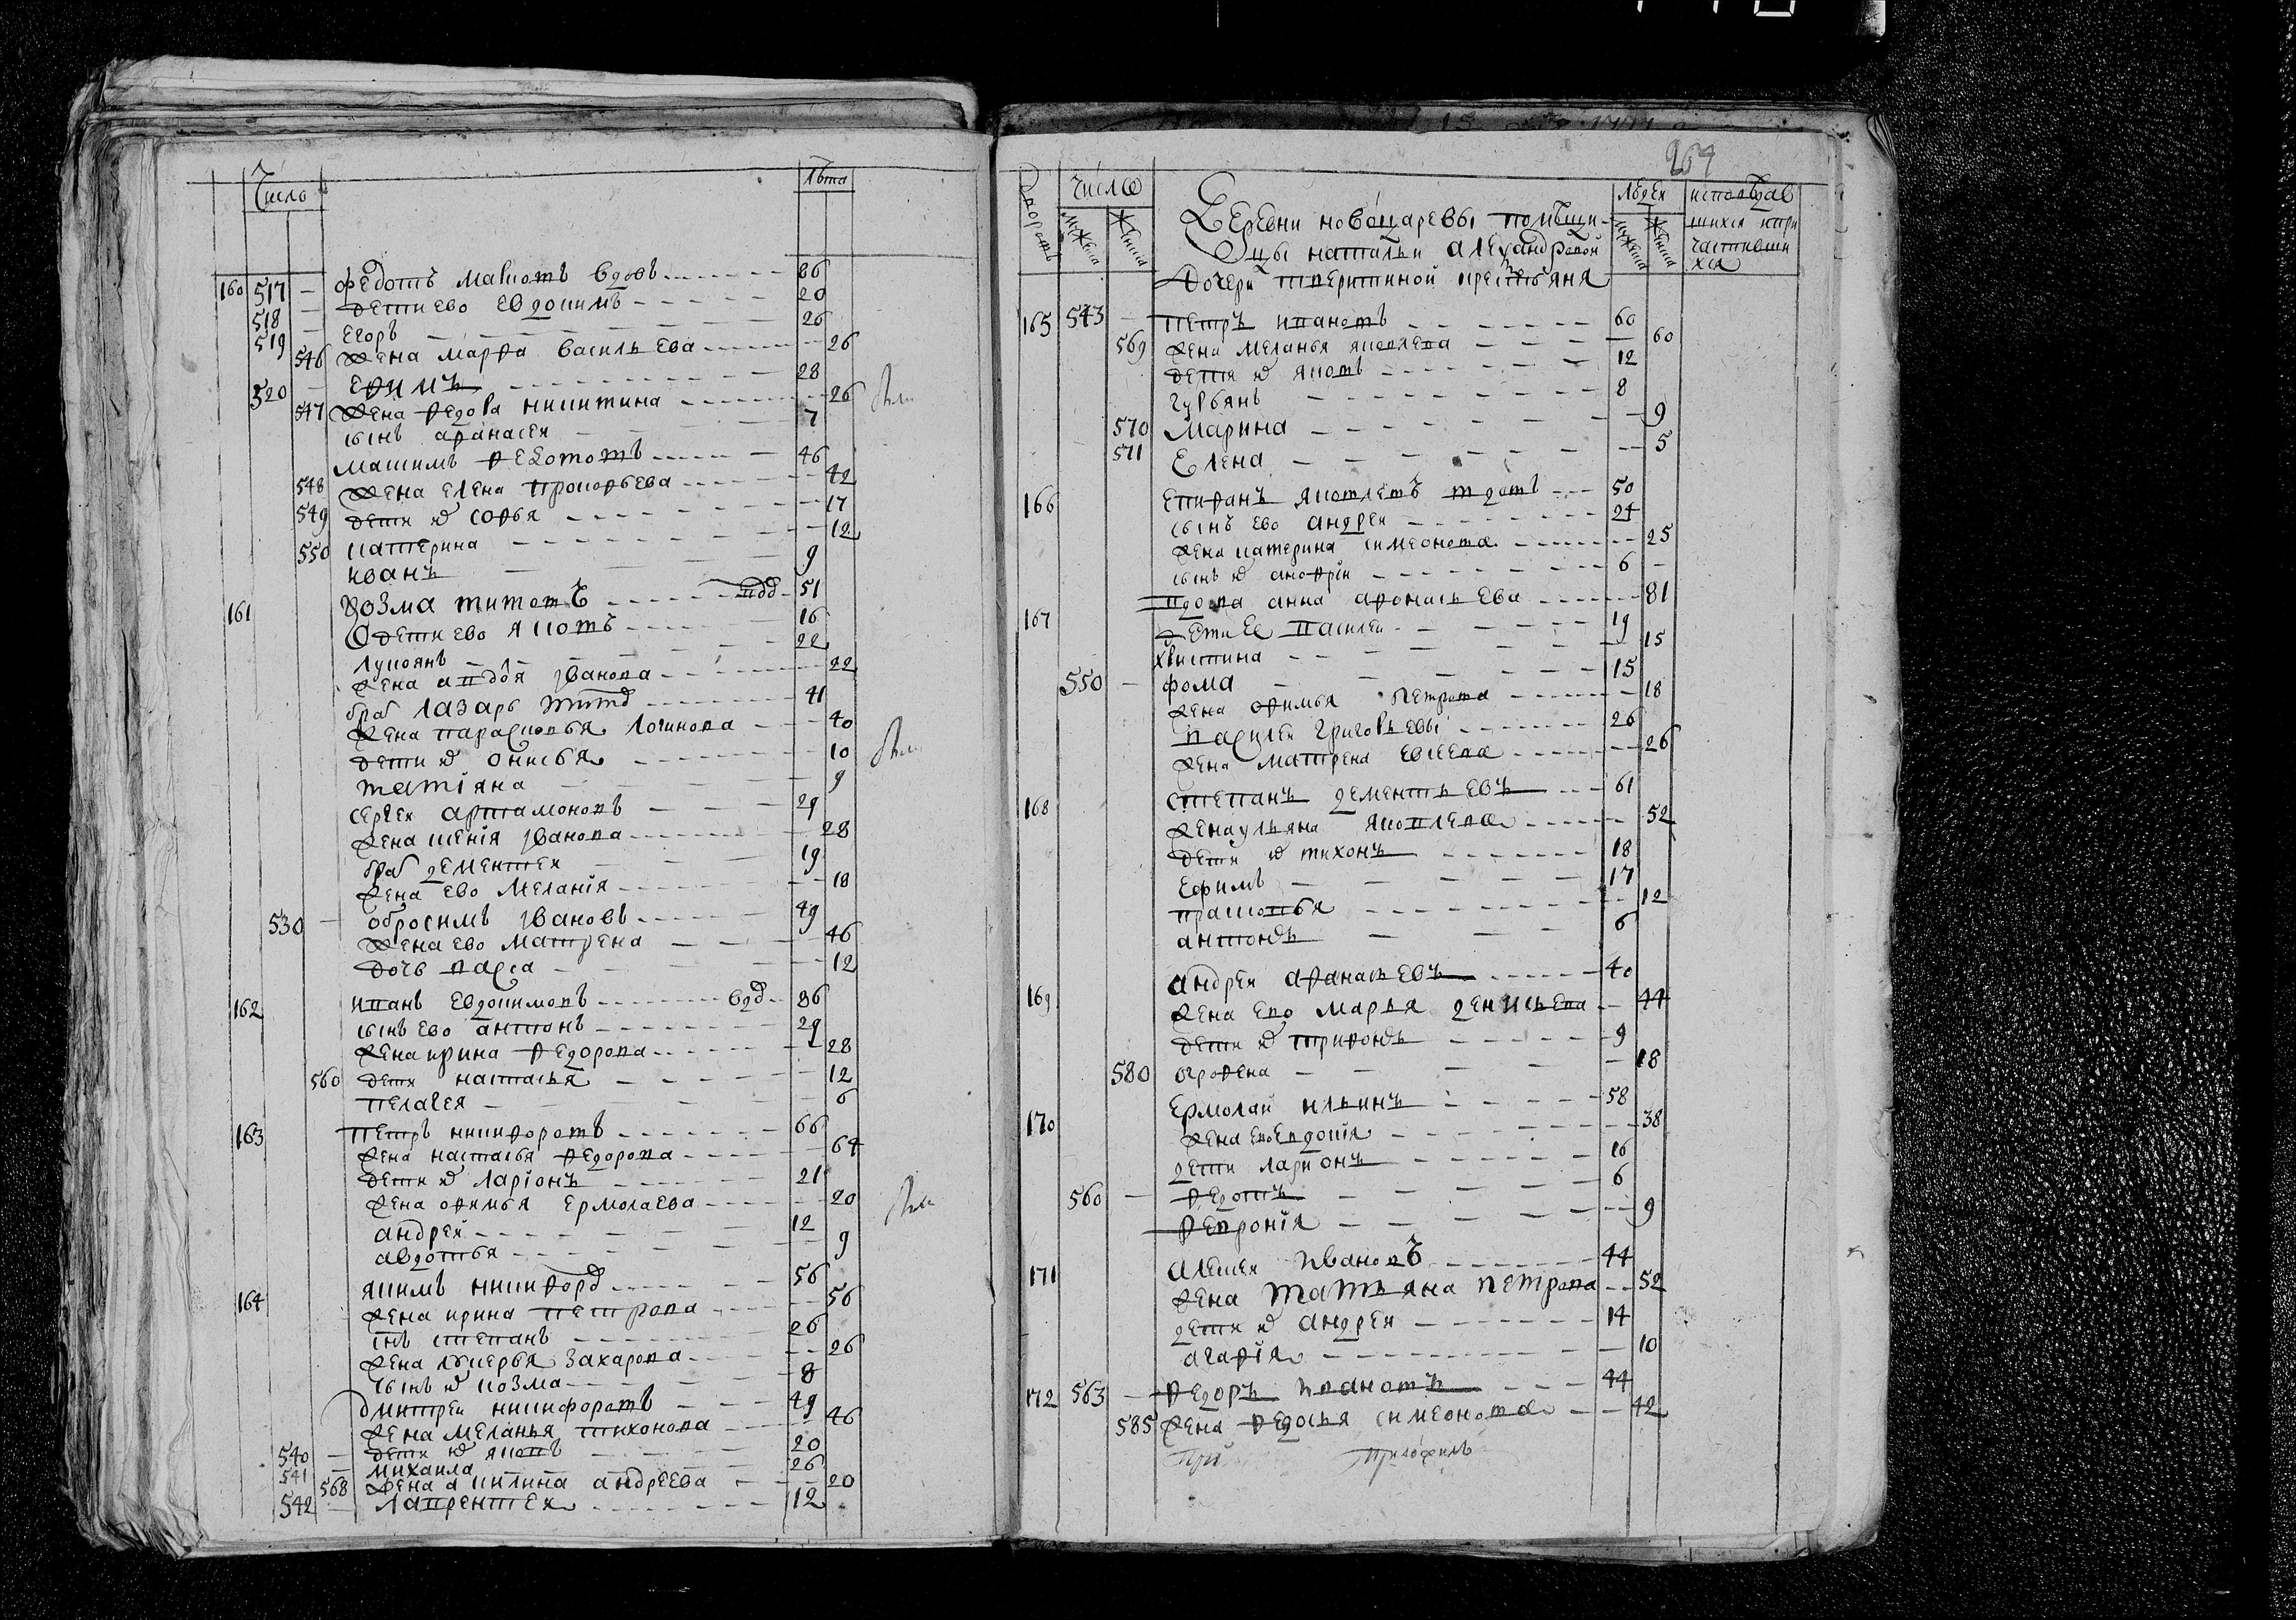 Число Лѣта
160 517 — федотъ макѡвъ вдовъ 86
518 — дети ево евдокимъ 20
519 — егоръ 26
546 жена марфа васильева 26
520 — ефимъ 28
547 жена федора никитина 26
сынъ афанасеи 7
макимъ федотовъ 46
548 жена елена прокофьева 42
549 дети их софья 17
550 катерина 12
иванъ 9
161 козма титовъ 51
дети ево яковъ 16
лукоянъ 22
жена авдотя иванова 22
брат лазарь тит 41
жена парасковья логинова 40
дети их онисья 10
татіяна 9
сергеи артамоновъ 29
жена ксенія иванова 28
брат дементеи 19
жена ево меланія 18
530 — обросимъ ивановъ 49
жена ево матрена 46
дочь варва 12
162 иванъ евдокимовъ вдв 86
сынъ ево антонъ 29
жена ирина федорова 28
560 дети настасья 12
пелагея 6
163 петръ никифоровъ 66
жена настасья федорова 64
дети их ларіонъ 21
жена офимья ермолаева 20
андреи 12
авдотья 9
164 якимъ никифор 56
жена ирина петрова 56
снъ степанъ 26
жена лукерья захарова 26
сынъ их козма 8
дмитреи никифоровъ 49
жена меланья тихонова 46
540 — дети их яковъ 20
541 — михаила 26
568 жена акилина андреева 20
542 — лаврентеи 12
264
Число Людеи исповѣдав
мужеска женска мужеска женска шихся и при
частивши
хся
Деревни новоцаревы помѣщи-
цы натальи алеѯандровой
дочери тверитиной крестьяня
165 543 — петръ ивановъ 60
569 жена меланья яковлева 60
дети их яковъ 12
гурьянъ 8
570 марина 9
571 елена 5
166 епифанъ яковлевъ вдовъ 50
сынъ ево андреи 24
жена катерина симеонова 25
сынъ их анофріи 6
167 вдова анна афонасьева 81
дети ее василеи 19
христина 15
550 — фома 15
жена офимья петрова 18
василеи григорьевы 26
жена матрена евсеева 26
168 степанъ дементьевъ 61
жена ульяна яковлева 52
дети их тихонъ 18
ефимъ 17
прасковья 12
антонъ 6
169 андреи афанасьевъ 40
жена ево марья денисьева 44
дети их трифонъ 9
580 огрофена 18
170 ермолаи ильинъ 58
жена ево евдокія 38
дети ларионъ 16
560 — федотъ 6
февронія 9
171 алексеи ивановъ 44
жена татьяна петрова 52
дети их андреи 14
агафія 10
172 563 — федоръ ивановъ 44
585 жена федосья симеонова 42